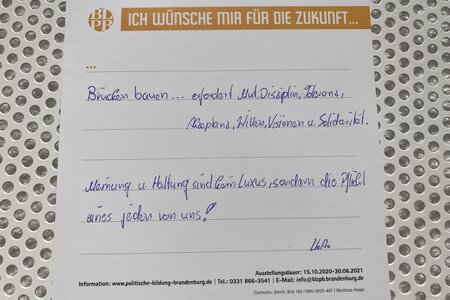 BLPB
ICH WÜNSCHE MIR FÜR DIE ZUKUNFT...
...
Brücken bauen... erfordert Mut, Disziplin, Toleranz,
Akzeptanz, Willen, Visionen u. Solidarität.
Meinung u. Haltung sind kein Luxus, sondern die Pflicht
eines jeden von uns!
Ausstellungsdauer: 15.10.2020-30.06.2021
Information: www.politische-bildung-brandenburg.de | Tel.: 0331 866-3541 | E-Mail: info@blzpb.brandenburg.de
Titelmotiv: BArch, Bild 183-1990-0825-407 | Matthias Hiekel